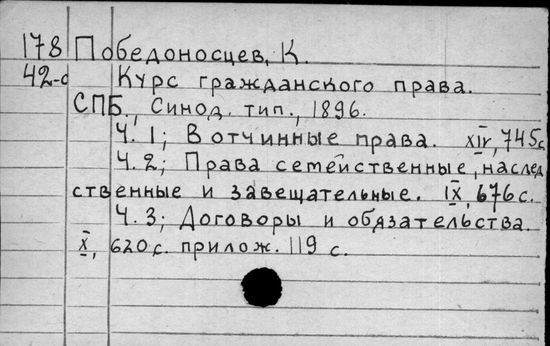 178 Победоносцев, К.
42-с Курс гражданского права.
СПБ., Синод. тип., 1896.
Ч. 1; Вотчинные права. XIV, 745с.
Ч. 2; Права семейственные, наслед
ственные и завещательные. IX, 676 с.
Ч. 3; Договоры и обязательства.
X, 620 с. прилож. 119 с.